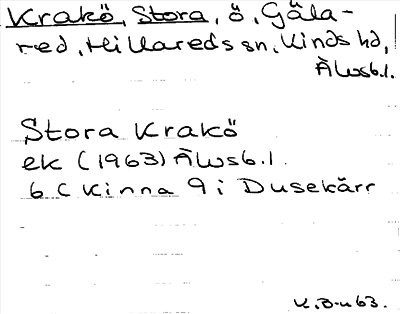 Krakö, Stora, ö, Gåla-
red, Hillareds sn, Kinds hd,
Älvsb.l.
Stora Krakö
ek (1963) Älvsb.l.
6 C Kinna 9 i Dusekärr
K.B-n 63.